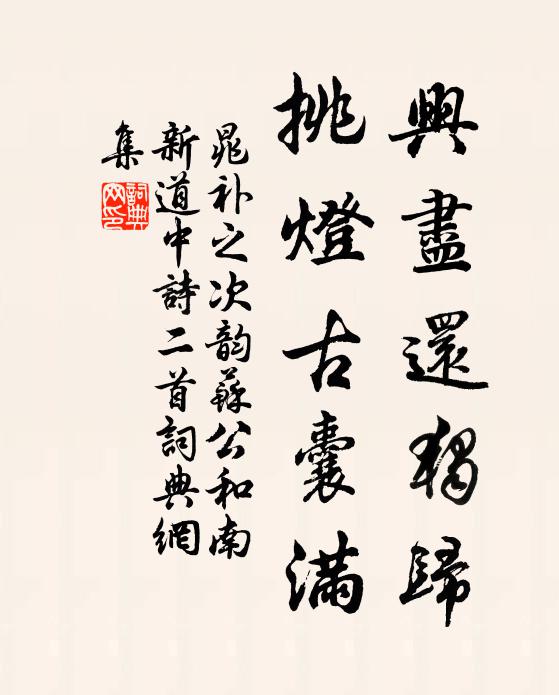 興盡還獨歸
挑燈古囊滿
晁补之次韵蘇公和南
新道中詩二首詞典網
集
詞典
网印